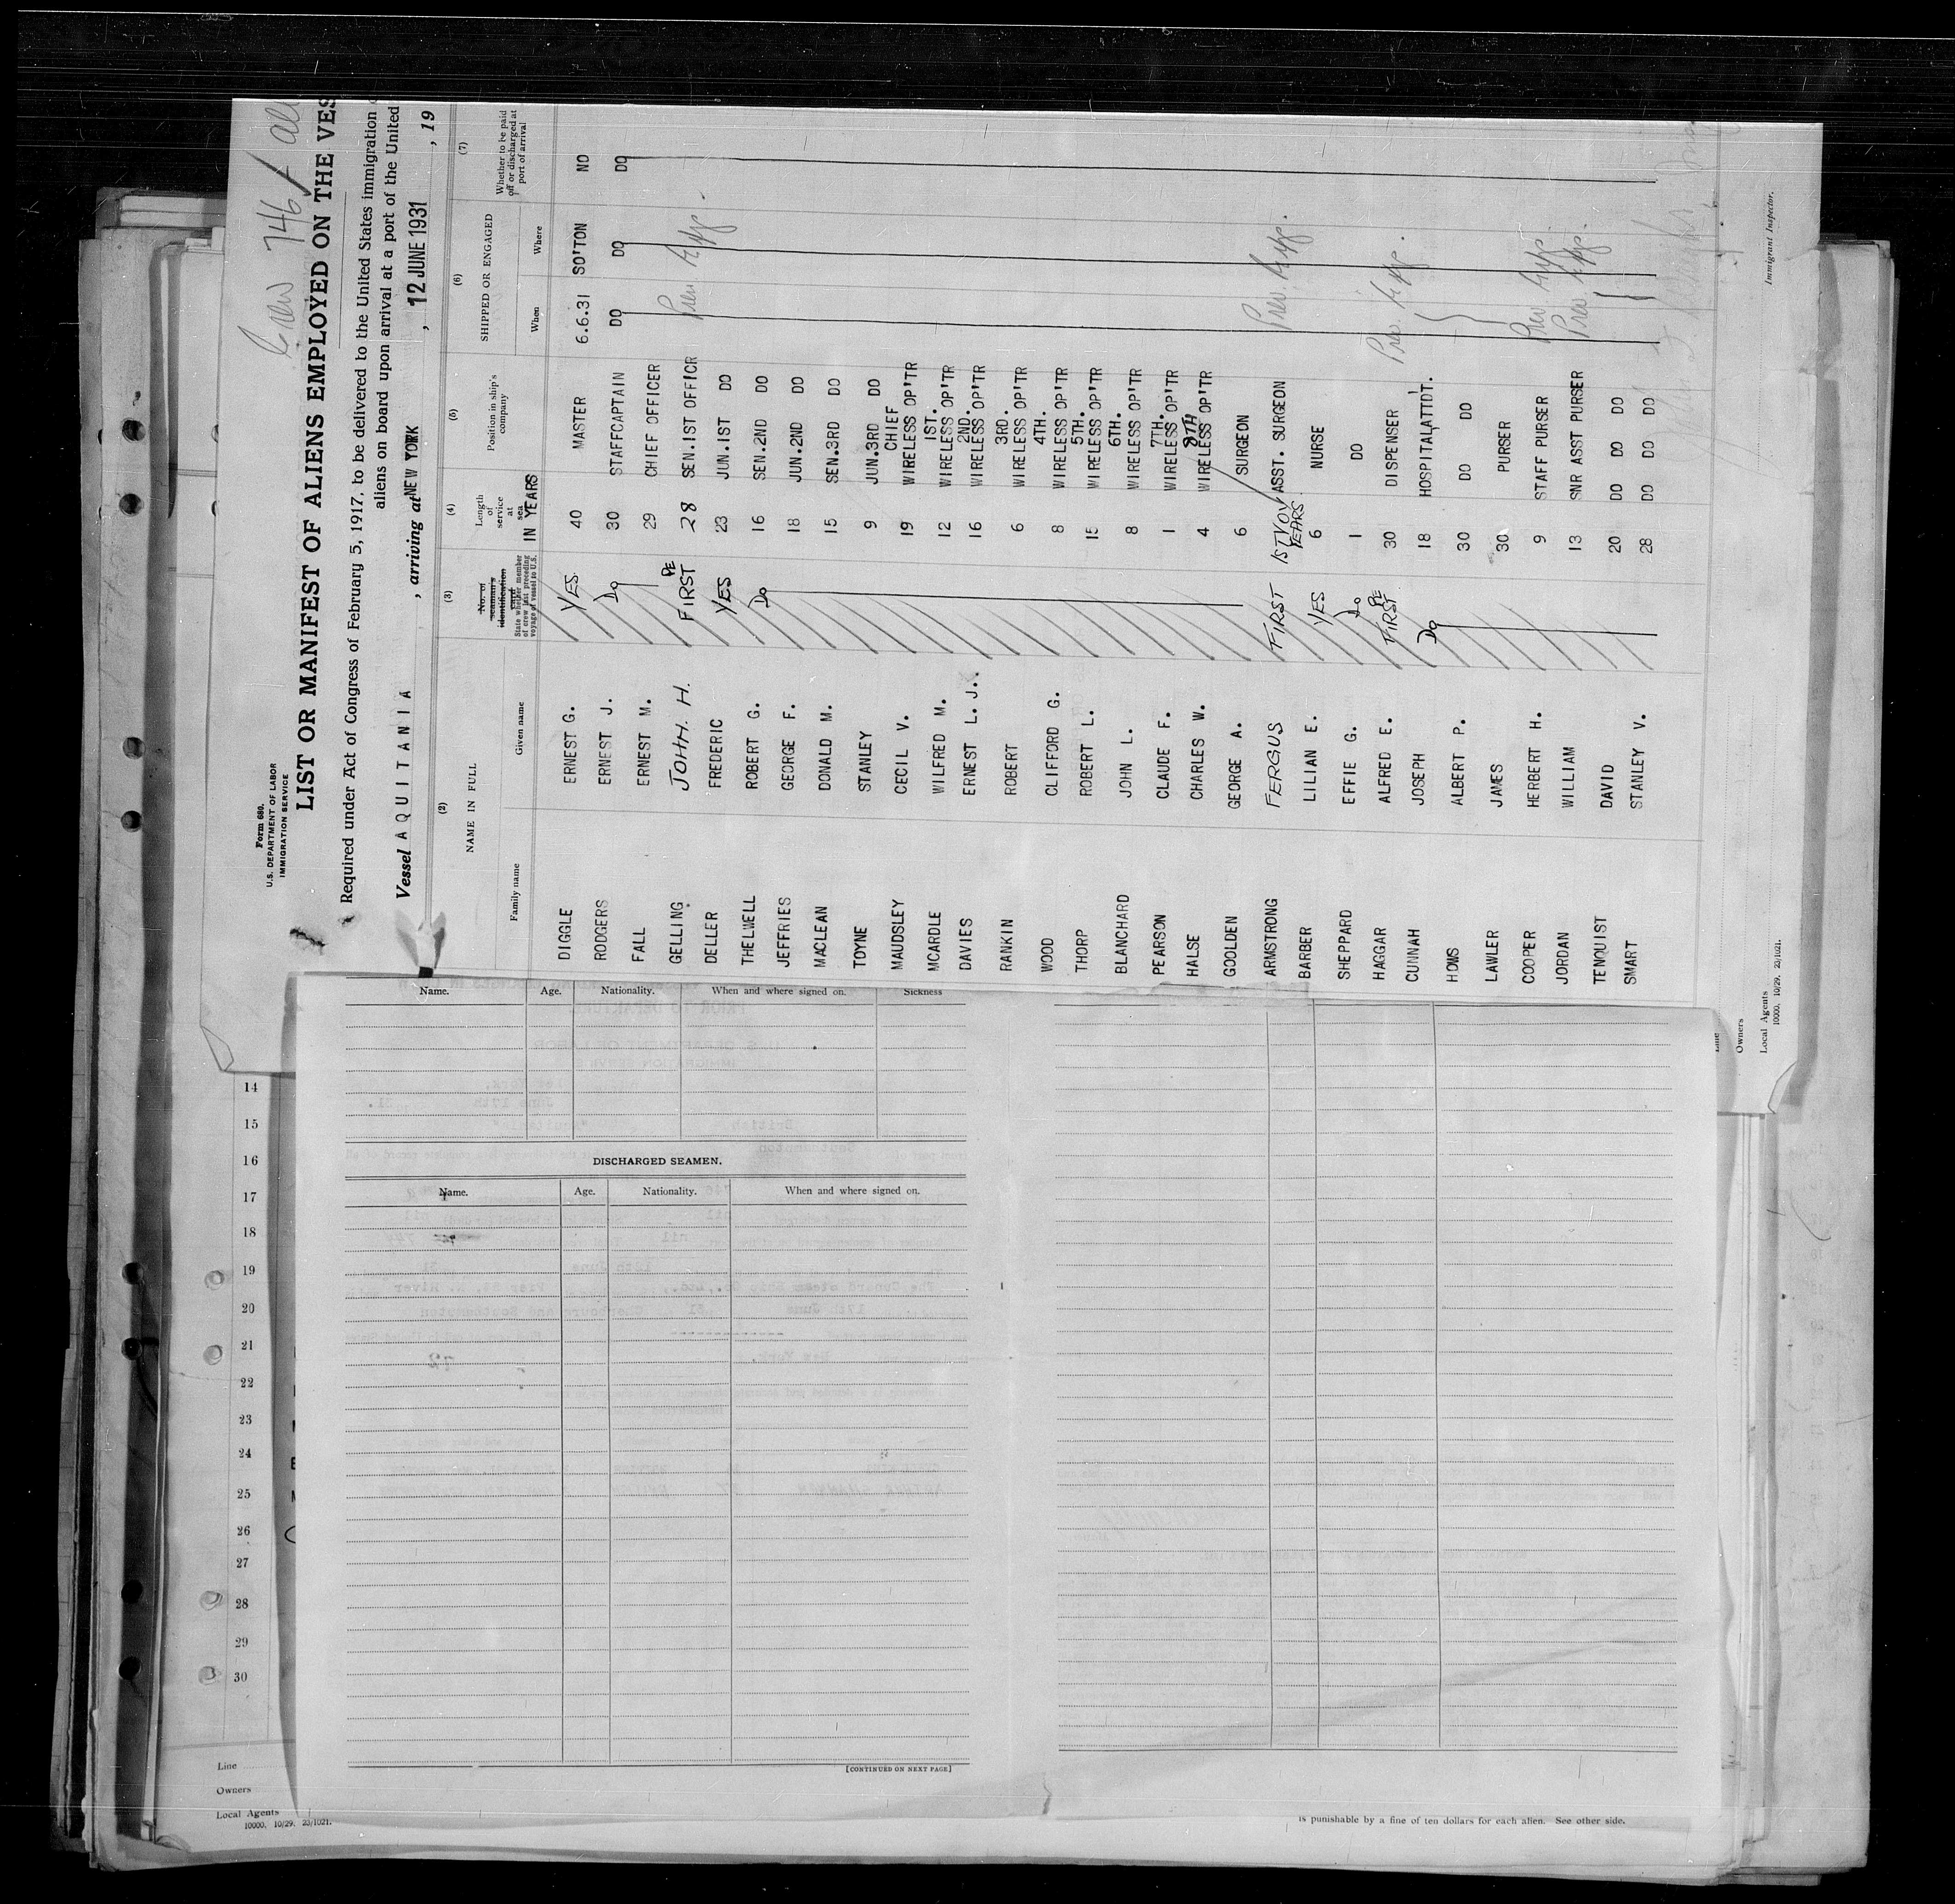 Crew 746 / all
Form 680.
U.S. DEPARTMENT OF LABOR
IMMIGRATION SERVICE
LIST OR MANIFEST OF ALIENS EMPLOYED ON THE VES
Required under Act of Congress of February 5, 1917, to be delivered to the United States immigration
aliens on board upon arrival at a port of the United
Vessel AQUITANIA , arriving at NEW YORK , 12 JUNE 1931 , 19
(2) (3) (4) (5) (6) (7)
NAME IN FULL
Family name Given name
No. of seaman's identification card
State whether member of crew last preceding voyage of vessel to U.S.
Length of service at sea
IN YEARS
Position in ship's company
SHIPPED OR ENGAGED
When Where
Whether to be paid off or discharged at port of arrival
DIGGLE ERNEST G. YES 40 MASTER 6.6.31 SO'TON NO
RODGERS ERNEST J. Do 30 STAFFCAPTAIN DO DO DO
FALL ERNEST M. 29 CHIEF OFFICER
GELLING JOHN. H. FIRST RE 28 SEN.1ST OFFICR Prev. App.
DELLER FREDERIC YES 23 JUN.1ST DO
THELWELL ROBERT G. Do 16 SEN.2ND DO
JEFFRIES GEORGE F. 18 JUN.2ND DO
MACLEAN DONALD M. 15 SEN.3RD DO
TOYNE STANLEY 9 JUN.3RD DO
MAUDSLEY CECIL V. 19 CHIEF WIRELESS OP'TR
MCARDLE WILFRED M. 12 1ST. WIRELESS OP'TR
DAVIES ERNEST L. J. 16 2ND. WIRELESS OP'TR
RANKIN ROBERT 6 3RD. WIRELESS OP'TR
WOOD CLIFFORD G. 8 4TH. WIRELESS OP'TR
THORP ROBERT L. 15 5TH. WIRELESS OP'TR
BLANCHARD JOHN L. 8 6TH. WIRELESS OP'TR
PEARSON CLAUDE F. 1 7TH. WIRELESS OP'TR
HALSE CHARLES W. 4 8TH WIRELESS OP'TR
GOOLDEN GEORGE A. 6 SURGEON
ARMSTRONG FERGUS FIRST 1ST VOY ASST. SURGEON Prev. App.
BARBER LILIAN E. YES YEARS 6 NURSE
SHEPPARD EFFIE G. Do 1 DO
HAGGAR ALFRED E. FIRST RE 30 DISPENSER Prev. App.
CUNNAH JOSEPH Do 18 HOSPITAL ATTDT.
HOWS ALBERT P. 30 DO DO
LAWLER JAMES 30 PURSER
COOPER HERBERT H. 9 STAFF PURSER Prev. App.
JORDAN WILLIAM 13 SNR ASST PURSER Prev. App.
TENQUIST DAVID 20 DO DO DO
SMART STANLEY V. 28 DO DO DO
Immigrant Inspector.
Line
Owners
Local Agents
10000. 10/29. 23/1021.
Name. Age. Nationality. When and where signed on. Sickness
DISCHARGED SEAMEN.
Name. Age. Nationality. When and where signed on.
[CONTINUED ON NEXT PAGE]
14
15
16
17
18
19
20
21
22
23
24
25
26
27
28
29
30
Line
Owners
Local Agents
10000. 10/29. 23/1021.
is punishable by a fine of ten dollars for each alien. See other side.